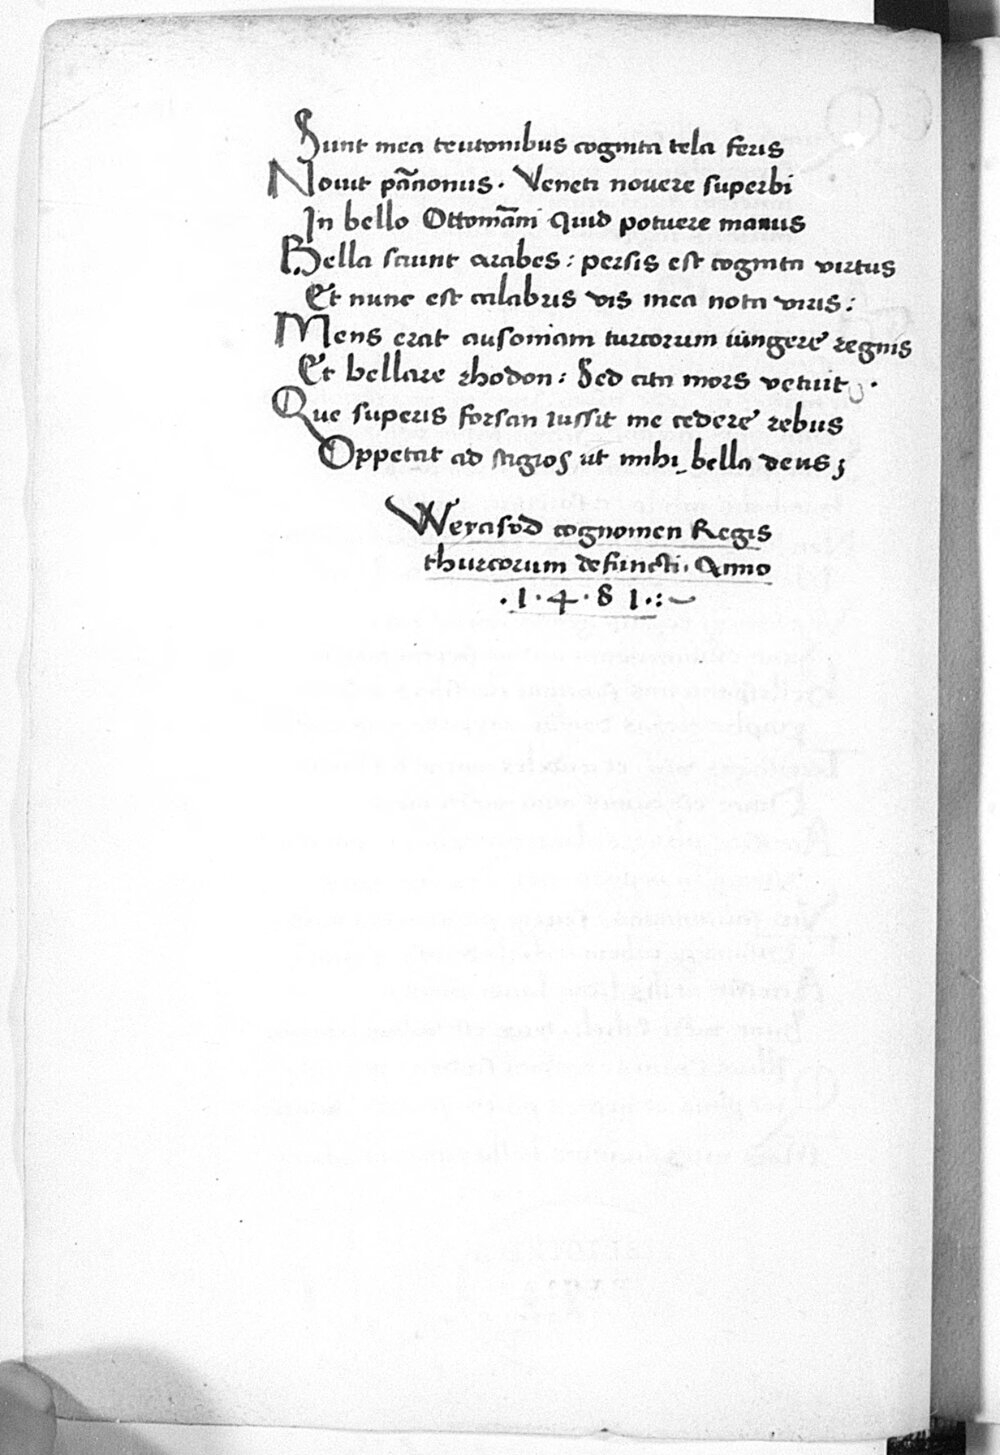 Sunt mea teutonibus cognita tela feris
Nouit pānonius. Veneti nouere superbi
In bello Ottomāni quid potuere manus
Bella sciunt arabes: persis est cognita virtus
Et nunc est calabris vis mea nota viris:
Mens erat ausoniam turcorum iungere regnis
Et bellare rhodon: Sed cita mors vetuit.
Que superis forsan iussit me cedere rebus
Oppetat ad stigios ut mihi bella deus;
Weyasōd cognomen Regis
thurcorum defuncti. Anno
.1.4.8 1.:~